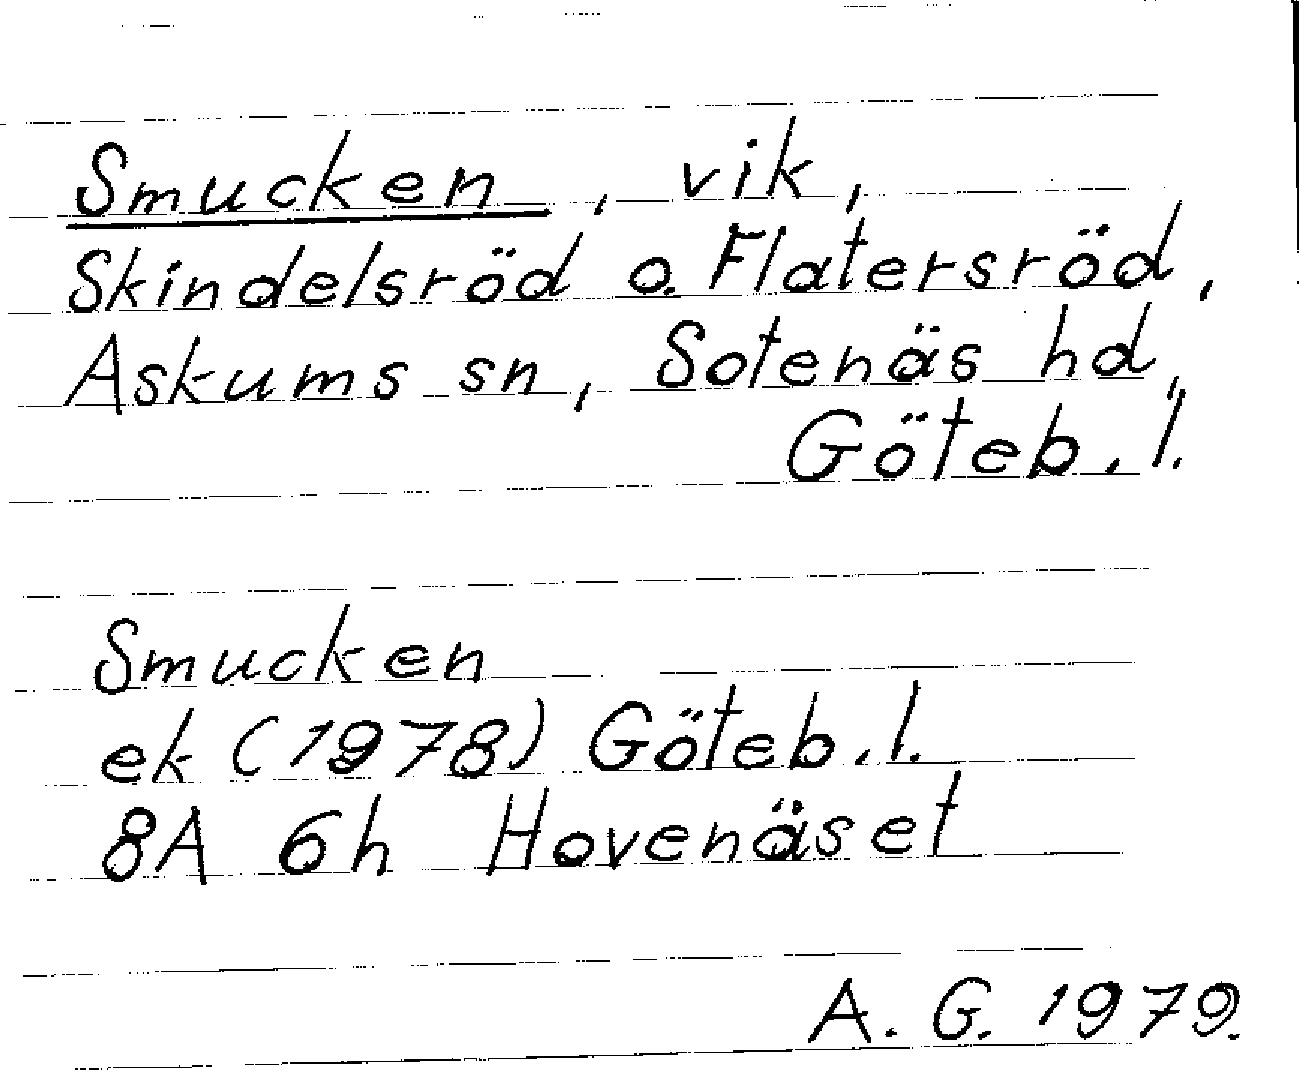 Smucken, vik,
Skindelsröd o. Flatersröd,
Askums sn, Sotenäs hd,
Göteb. l.
Smucken
ek (1978) Göteb. l.
8A 6h Hovenäset
A. G. 1979.